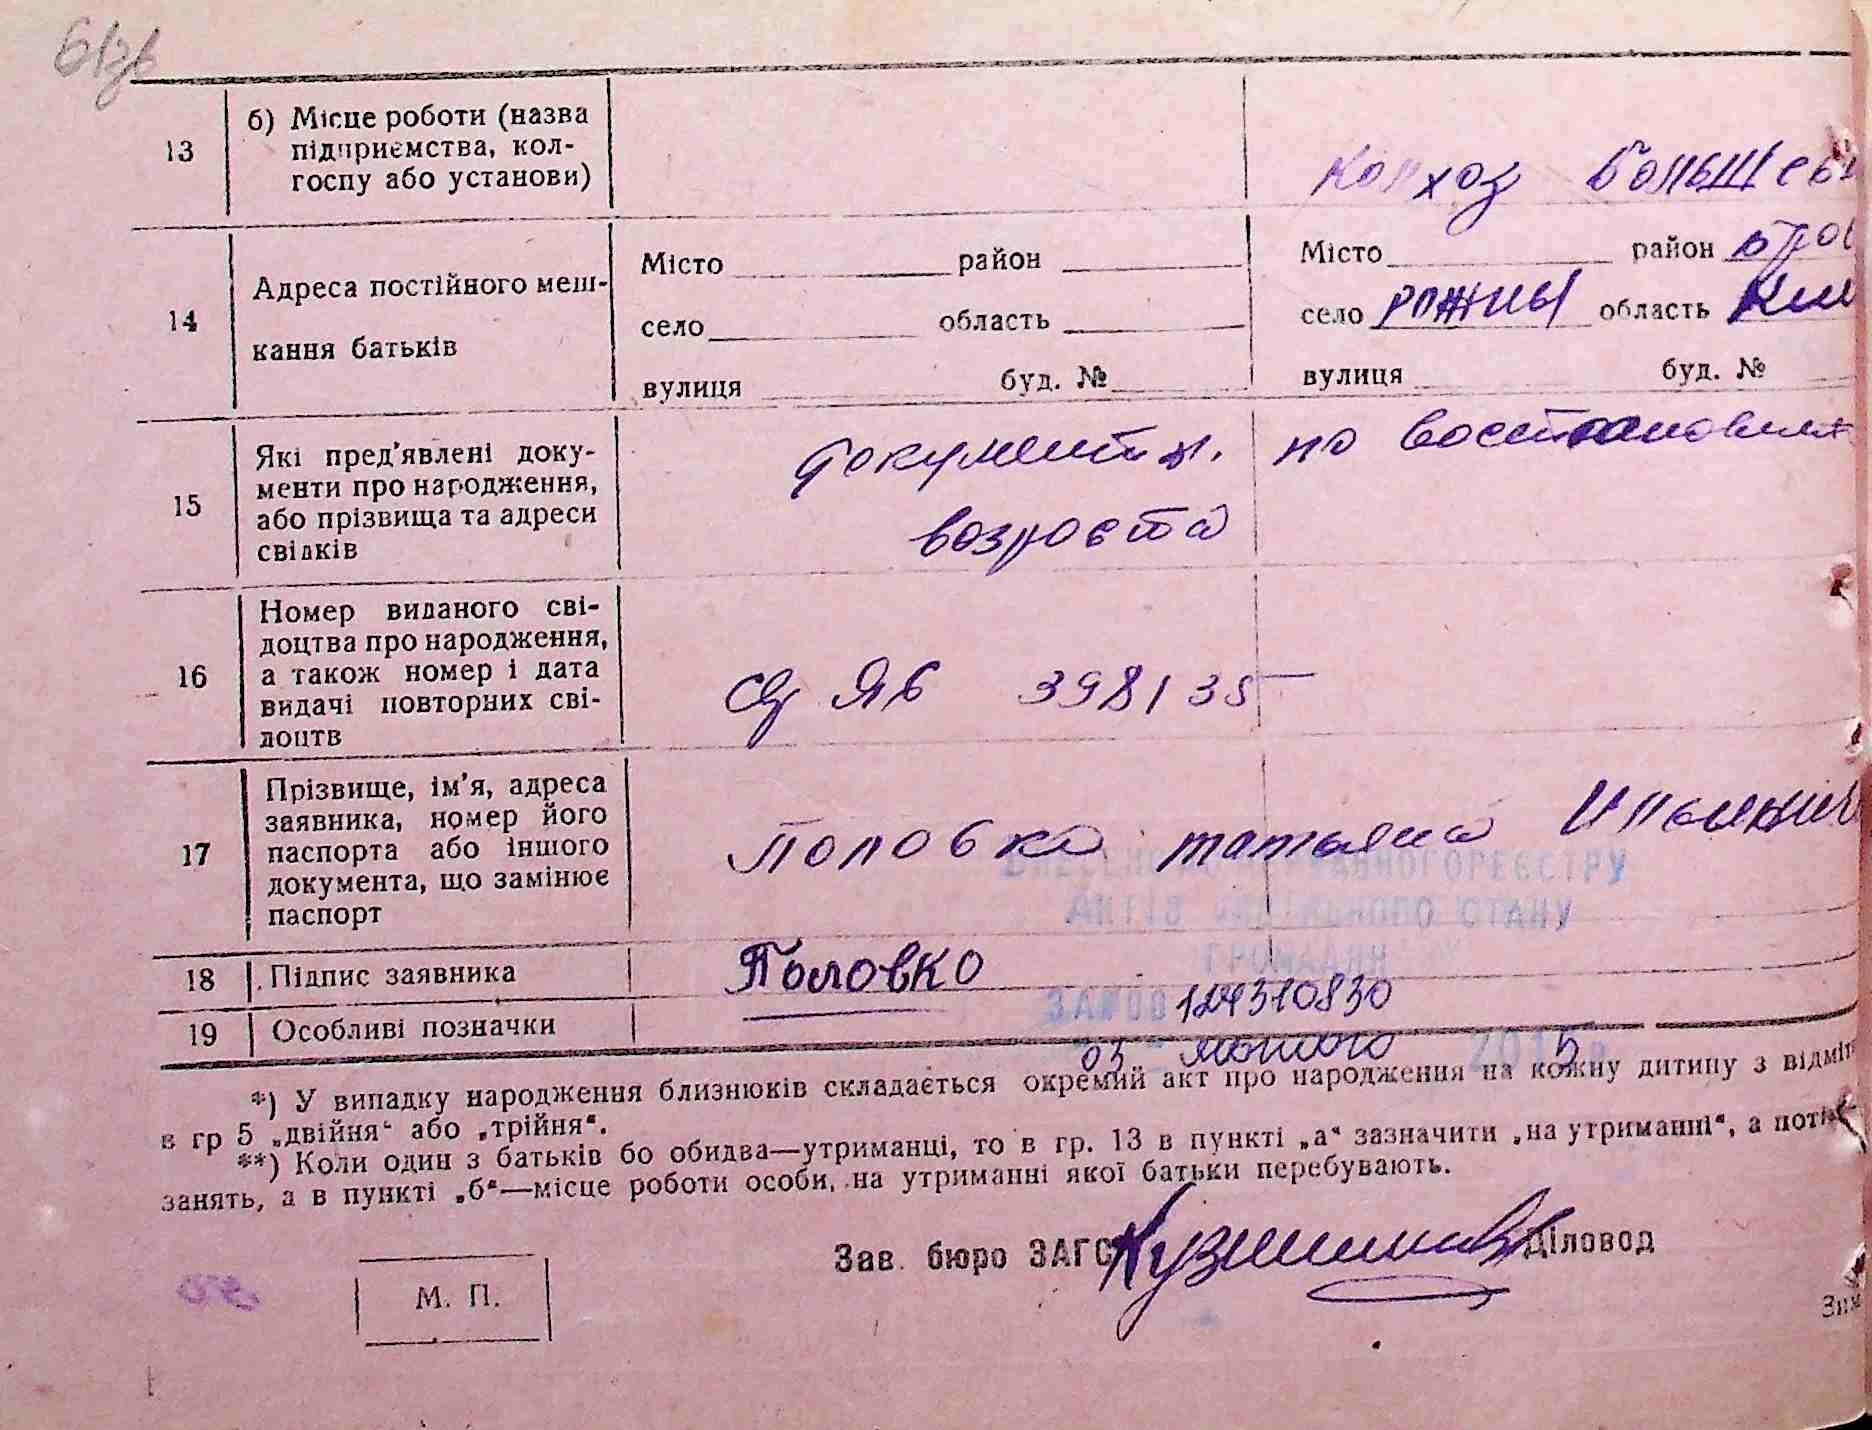 61зв
13 б) Місце роботи (назва
підприємства, кол-
госпу або установи)
Колхоз Большеви
14 Адреса постійного меш-
кання батьків
Місто район
село область
вулиця буд. №
Місто район Бров
село Рожны область Кие
вулиця буд. №
15 Які пред'явлені доку-
менти про народження,
або прізвища та адреси
свідків
документы. по восстановле
возроста
16 Номер виданого сві-
доцтва про народження,
а також номер і дата
видачі повторних сві-
доцтв
ЯБ 398135
17 Прізвище, ім'я, адреса
заявника, номер його
паспорта або іншого
документа, що замінює
паспорт
Половко татьяна
ВНЕСЕНО ДО ДЕРЖАВНОГО РЕЄСТРУ
АКТІВ ЦИВІЛЬНОГО СТАНУ
ГРОМАДЯН
18 Підпис заявника
Половко
124310830
19 Особливі позначки
03 лютого 2015 р
*) У випадку народження близнюків складається окремий акт про народження на кожну дитину з відміт
в гр 5 „двійня“ або „трійня“.
**) Коли один з батьків бо обидва—утриманці, то в гр. 13 в пункті „а“ зазначити „на утриманні“, а поті
занять, а в пункті „б“—місце роботи особи, на утриманні якої батьки перебувають.
Зав. бюро ЗАГС Діловод
М. П.